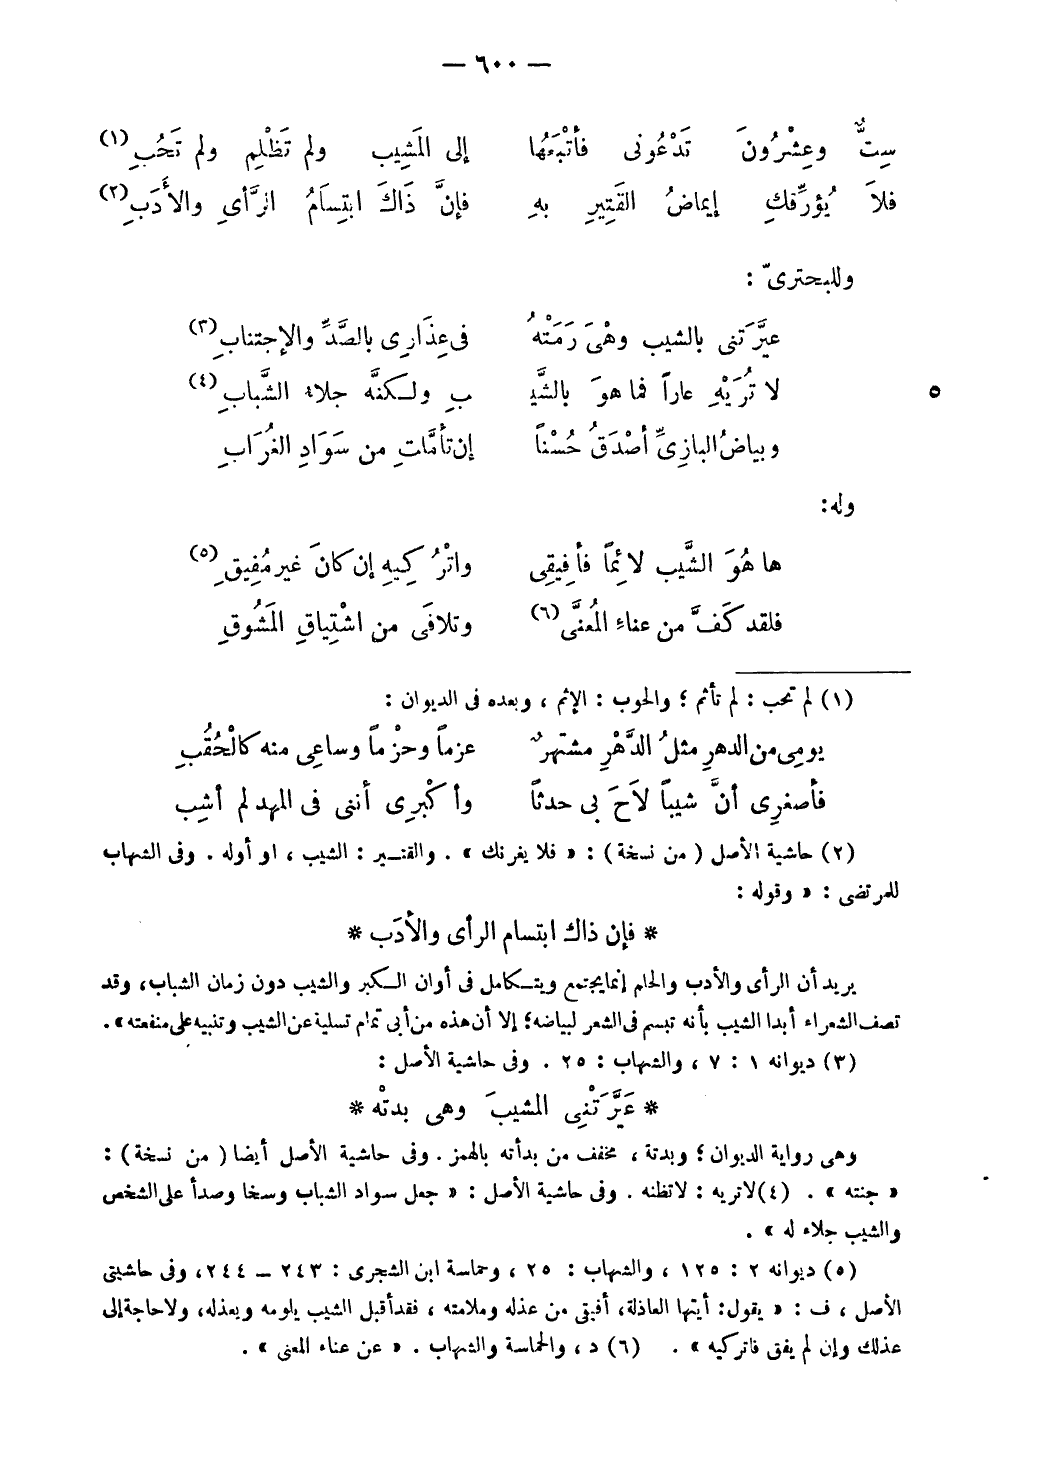 — ٦٠٠ —
سِتٌّ وعِشْرُونَ تَدْعُونى فأَتْبَعُها إلى المَشِيبِ ولم تَظْلِمِ ولم تَحُبِ (١)
فلاَ يُؤرِّقكِ إيماضُ القَتِيرِ بهِ فإنَّ ذَاكَ ابتِسَامُ الرَّأىِ والأَدَبِ (٢)
وللبحترىّ :
عيَّرَتنى بالشيب وهْىَ رَمَتْهُ فى عِذَارِى بالصَّدِّ والإجتنابِ (٣)
لا تُرَيْهِ عاراً فما هوَ بالشَّيْـ ـبِ ولكنَّه جلاء الشَّبابِ (٤)
٥
وبياضُ البازِىِّ أصْدَقُ حُسْناً إن تأمَّلتِ من سَوَادِ الغُرَابِ
وله :
ها هُوَ الشَّيب لائِماً فأفِيقِى واتْرُكِيهِ إن كانَ غيرَ مُفِيقِ (٥)
فلقد كَفَّ من عناءِ المُعنَّى (٦) وتلافَى من اشْتِياقِ المَشُوقِ
(١) لم تحب : لم تأثم ؛ والحوب : الإثم ، وبعده فى الديوان :
يومِى من الدهرِ مثلُ الدَّهْرِ مشتهرٌ عزماً وحزْماً وساعِى منه كالْحُقُبِ
فأصغرِى أنَّ شيباً لاَحَ بى حدثاً وأكْبرِى أننى فى المهد لم أشِب
(٢) حاشية الأصل ( من نسخة ) : « فلا يغرنك » . والقتير : الشيب ، او أوله . وفى الشهاب
للمرتضى : « وقوله :
* فإن ذاك ابتسام الرأى والأدَب *
يريد أن الرأى والأدب والحلم إنما يجتمع ويتكامل فى أوان الكبر والشيب دون زمان الشباب ، وقد
تصف الشعراء أبدا الشيب بأنه تبسم فى الشعر لبياضه ؛ إلا أن هذه من أبى تمام تسلية عن الشيب وتنبيه على منفعته » .
(٣) ديوانه ١ : ٧ ، والشهاب : ٢٥ . وفى حاشية الأصل :
* عَيَّرَتْنِى المشيبَ وهى بدتْه *
وهى رواية الديوان ؛ وبدتة ، مخفف من بدأته بالهمز . وفى حاشية الأصل أيضا ( من نسخة ) :
« جنته » . (٤) لا تريه : لا تظنه . وفى حاشية الأصل : « جعل سواد الشباب وسخا وصدأ على الشخص
والشيب جلاء له » .
(٥) ديوانه ٢ : ١٢٥ ، والشهاب : ٢٥ ، وحماسة ابن الشجرى : ٢٤٣ – ٢٤٤ ، وفى حاشيتى
الأصل ، ف : « يقول : أيتها العاذلة ، أفيقى من عذله وملامته ، فقد أقبل الشيب يلومه ويعذله ، ولا حاجة إلى
عذلك وإن لم يفق فاتركيه » . (٦) د ، والحماسة والشهاب . « عن عناء المعنى » .